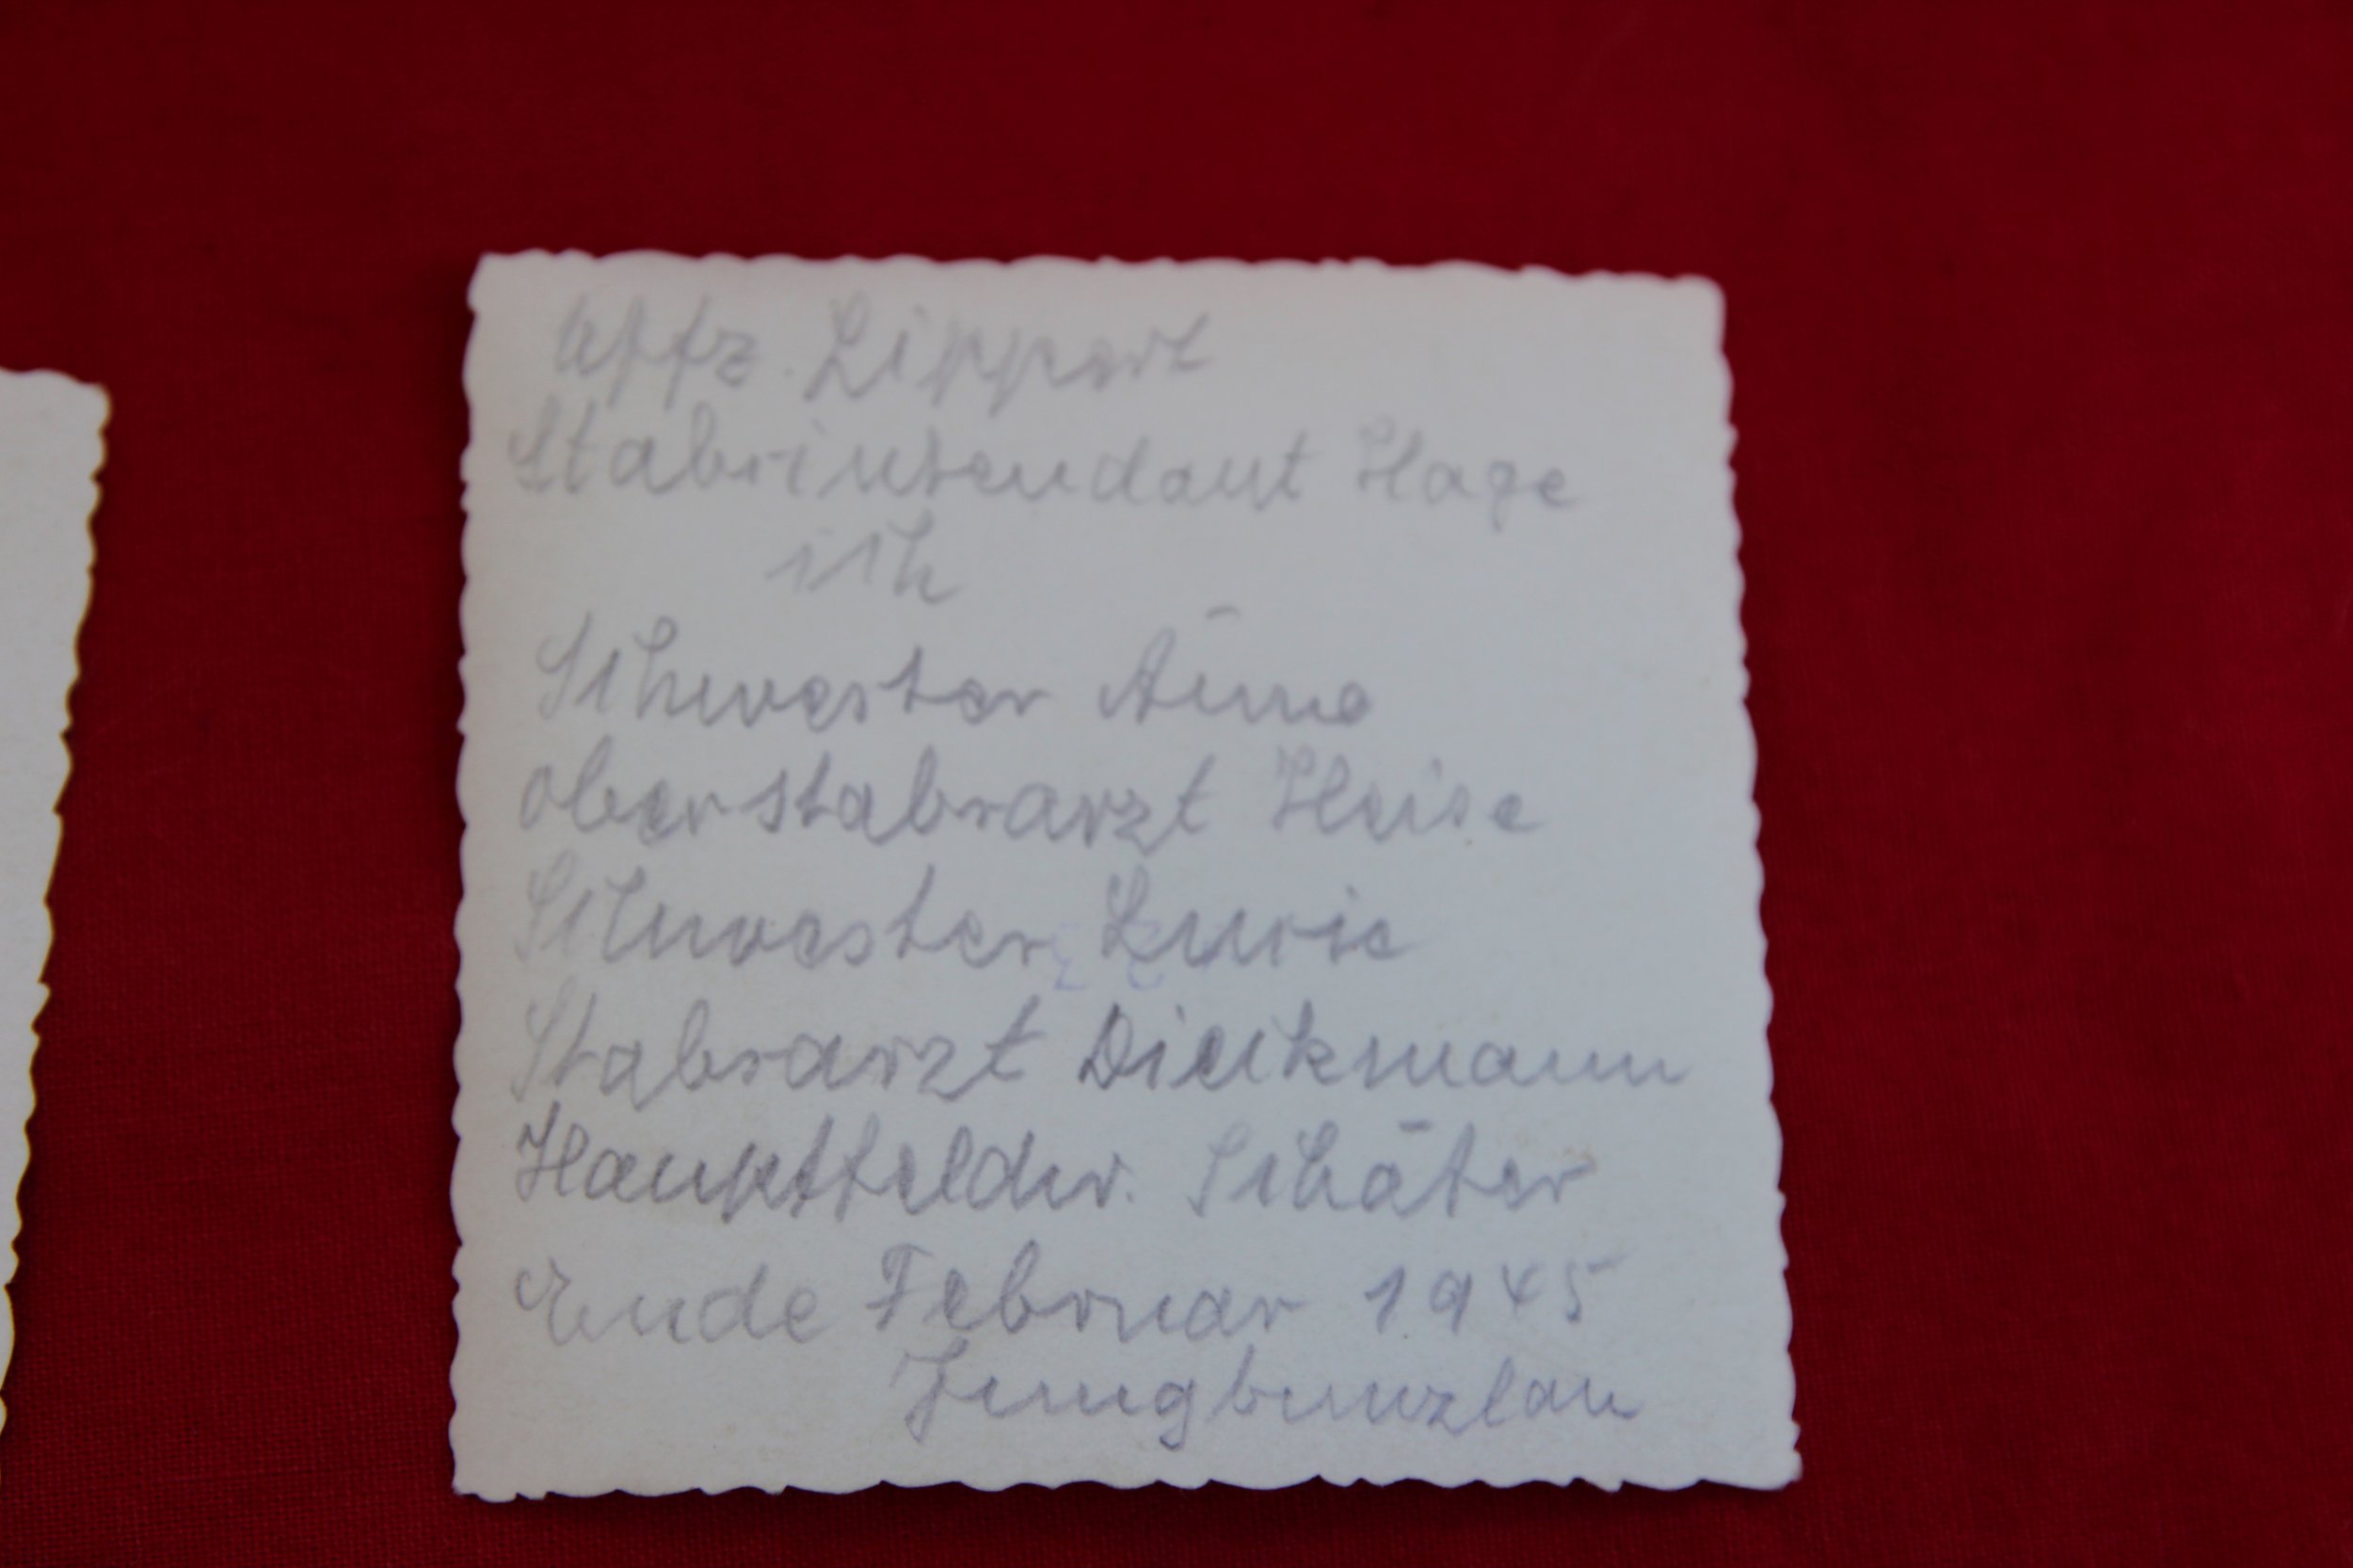 Uffz. Lippert
Stabsintendant Hage
ich
Schwester Änne
Oberstabsarzt Heise
Schwester
Stabsarzt Dieckmann
Hauptfeldw. Schäfer
Ende Februar 1945
Jungbunzlau